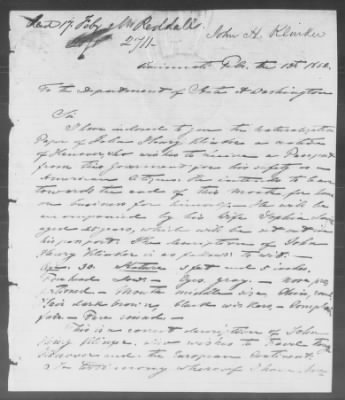 Sent 17. Feby Mr Reddall
2711
John H. Klinker
Feb. the 13th 1852.
To the Department of State at Washington
Sir
I have inclosed to you the Naturalization
Paper of John Henry Klinker a native
of Hanover, who wishes to receive a Passport
from this Government for his safety as
American Citizen. He intends to leave
towards the end of this Month for
on business for himself. He will be
accompanied by his wife Sophia
aged 25 years, which will be set out in
his passport. The description of John
Henry Klinker is as follows to wit.
Age. 30. Stature 5 feet and 5 inches.
Forehead Eyes gray. Nose pro
portioned. Mouth middle size. Chin, round
Hair dark brown, black whiskers. Complex
fair. Face round.
This is a correct description of John
Henry Klinker, who wishes to travel through
Hanover and the European Continent.
In Testimony thereof I have